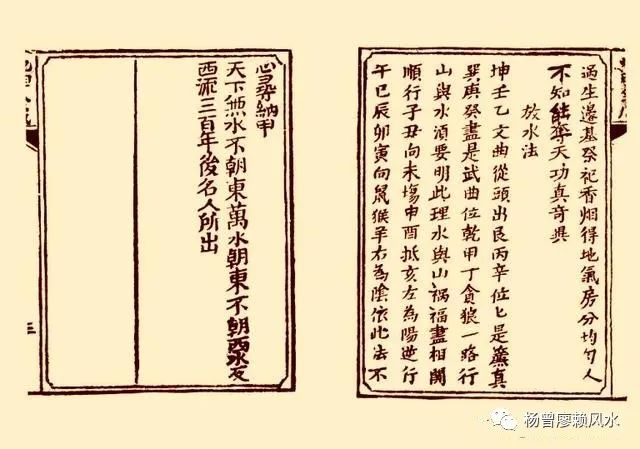 過生邊基祭祀香烟得地氣房分均勻人
不知能奪天功真奇異
放水法
坤壬乙文曲從頭出艮丙辛位匕是廉真
巽庚癸盡是武曲位乾甲丁貪狼一路行
山與水湏要明此理水與山禍福盡相關
順行子丑向未塲申酉抵亥左為陽逆行
午巳辰卯寅向鼠猴羊右為陰依此法不
心尋納甲
天下無水不朝東萬水朝東不朝西水反
西流三百年後名人所出
三
杨曾廖赖风水